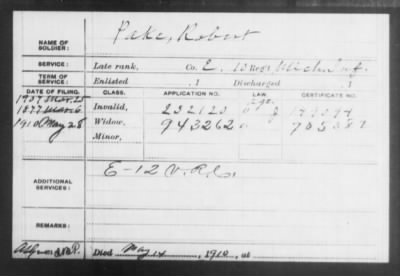 NAME OF SOLDIER: Pake, Robert
SERVICE: Late rank, Co. E, 10 Reg't Mich Inf
TERM OF SERVICE: Enlisted , 1 Discharged , 1
DATE OF FILING. CLASS. APPLICATION NO. LAW. CERTIFICATE NO.
1907 Mar. 25
1877 Mar. 6 Invalid, 232123
1910 May 28 Widow, 943262
Minor,
ADDITIONAL SERVICES: E-12 V.R.C.
REMARKS:
Died May 14, 1910, at